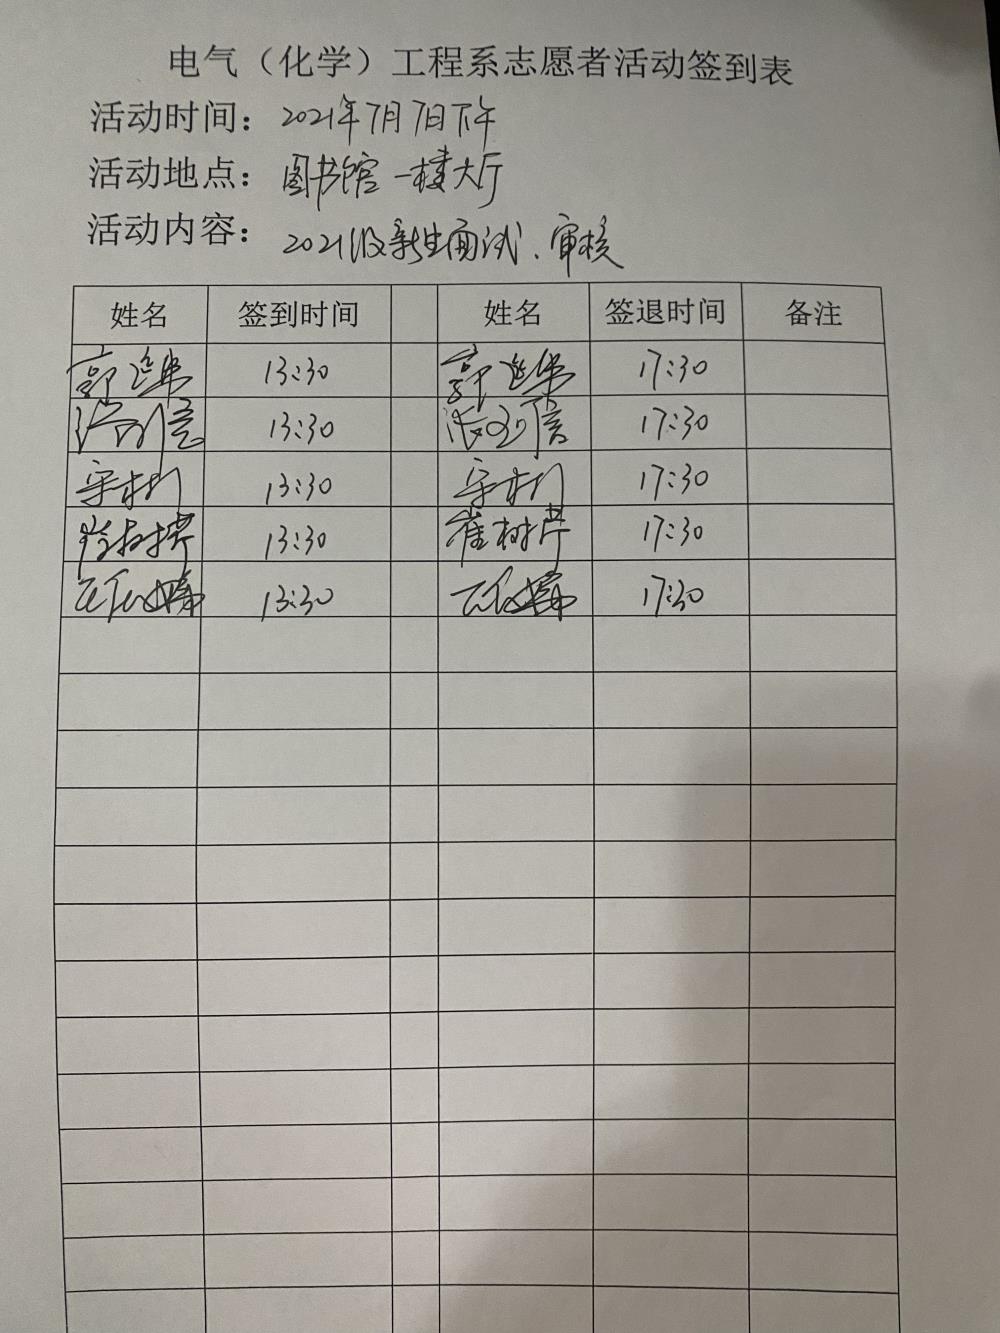 电气（化学）工程系志愿者活动签到表
活动时间：2021年7月7日下午
活动地点：图书馆一楼大厅
活动内容：2021级新生面试、审核
姓名 签到时间 姓名 签退时间 备注
郭 13:30 郭 17:30
13:30 17:30
13:30 17:30
崔树芹 13:30 崔树芹 17:30
13:30 17:30